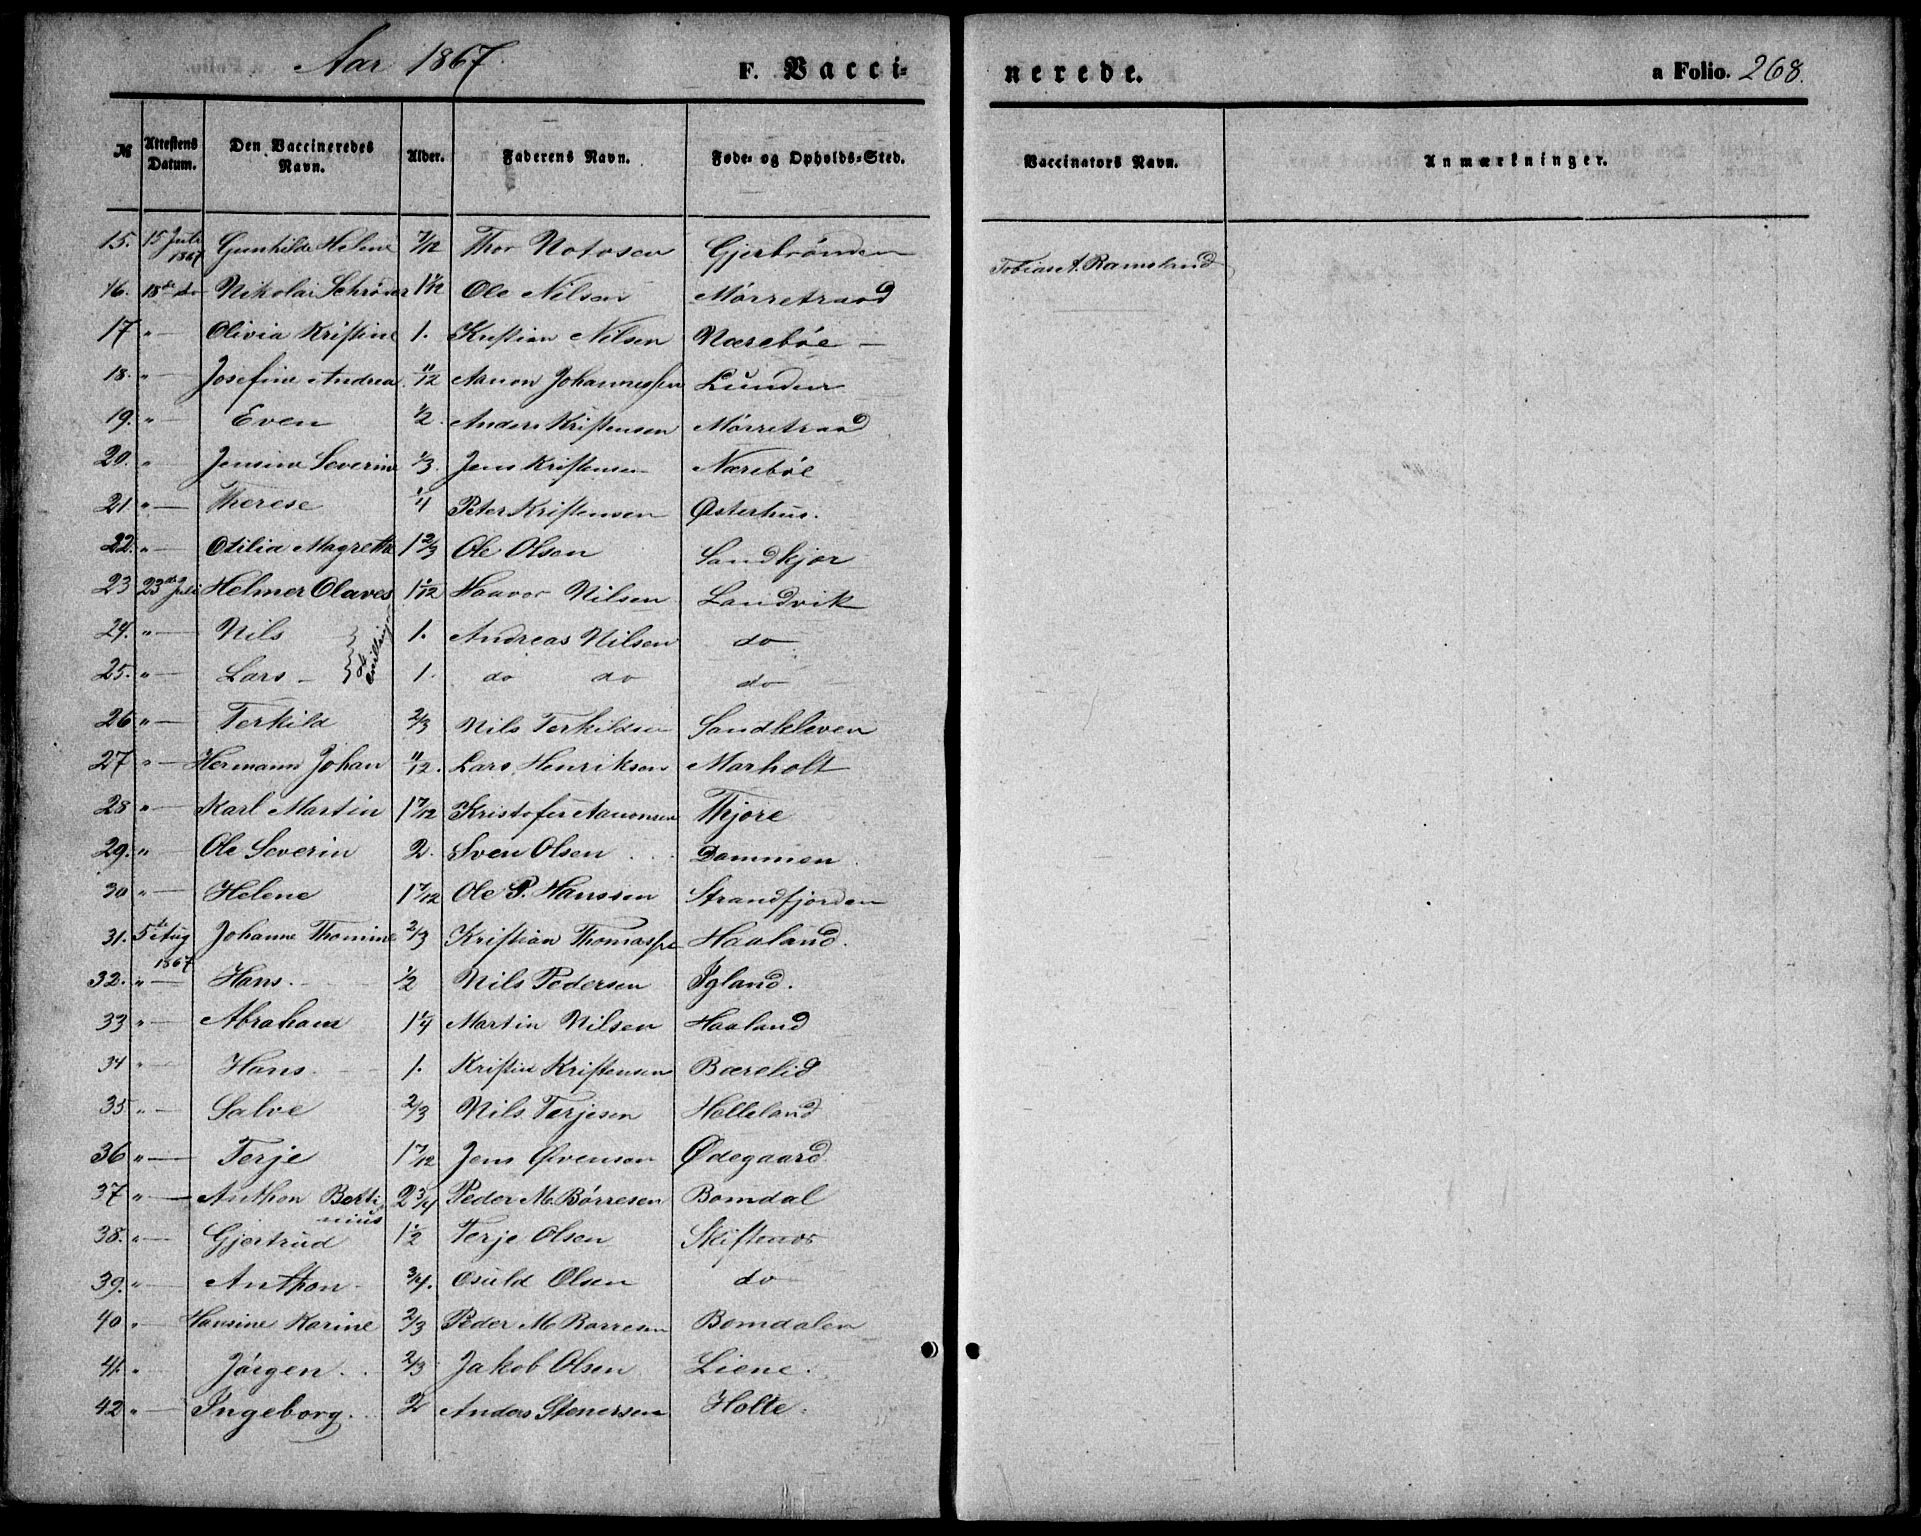 Aar 1867. F. Vacci- nerede. a Folio. 268.
№ Attestens Datum. Den Vaccineredes Navn. Alder. Faderens Navn. Føde- og Opholds-Sted. Vaccinators Navn. Anmærkninger.
15. 15 Juli 1867 Gunhilde Helene 7/12 Thor Notosen Gjerbrønden Tobias A. Ramsland
16. 18de do Nikolai Schrøder 1 1/12 Ole Nilsen Mørretraad
17 " — Olivia Kristine 1. Kristian Nilsen Nærebøe —
18. " — Josefine Andrea 11/12 Aanon Johannessen Lunden
19. " — Even 1/2. Anders Kristensen Mørretraad
20. " — Jensine Severine 1/3. Jens Kristensen Nærebøe
21 " — Therese 1/4 Peter Kristensen Østerhus.
22. " — Otilia Magrethe 1 2/3 Ole Olsen Sandkjær
23 23de Juli Helmer Olaves 1 1/12 Haavor Nilsen Landvik
24. " — Nils 1. Andreas Nilsen do
25. " — Lars — 1. do do do
26 " — Terkild 2/3 Nils Terkildsen Sandkleven
27 " — Hermann Johan 11/12. Lars Henriksen Marholt
28 " — Karl Martin 1 7/12 Kristofer Aanonsen Thjore
29. " — Ole Severin 2. Sven Olsen Dommen
30 " — Helene 1 7/12 Ole P. Hanssen Strandfjorden
31. 5te Aug 1867 Johanne Thomine 2/3 Kristian Thomassen Haaland.
32. " — Hans. 1/2 Nils Pedersen Igland.
33 " — Abraham 1 1/4 Martin Nilsen Haaland
34 " — Hans. 1. Kristen Kristensen Bærelid
35 " — Salve 2/3 Nils Terjesen Holleland
36 " — Terje 1 7/12 Jens Øvenson Ødegaard
37 " — Anthon Berti- nius 2 3/4 Peder M. Børresen Bomdal
38. " — Gjertrud 1 1/2 Terje Olsen Skiftenes
39. " — Anthon 3/4. Osuld Olsen do
40 " — Hansine Karine 2/3 Peder M Børresen Bomdalen
41. " — Jørgen. 2/3 Jakob Olsen Liene.
42 " — Ingeborg. 2 Anders Stenersen Holte.